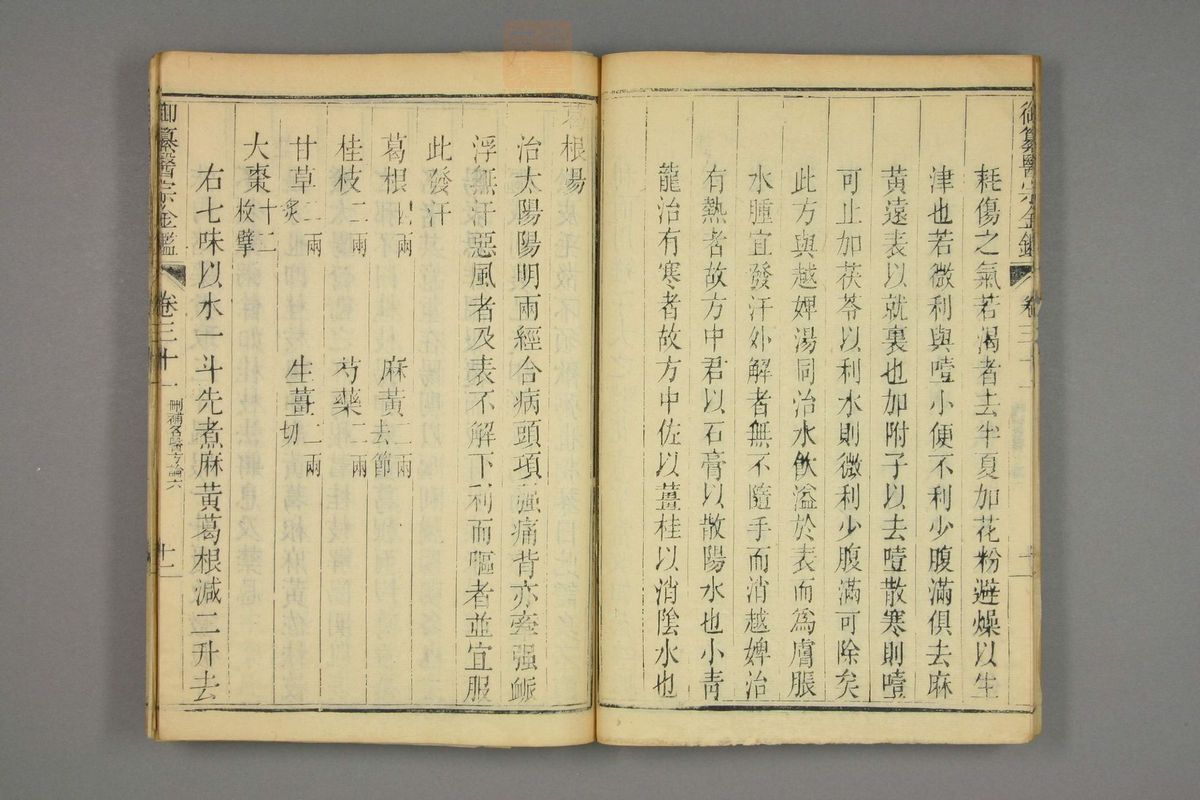 御纂醫宗金鑑
卷三十
耗傷之氣若渴者去半夏加花粉避燥以生
津也若微利與噎小便不利少腹滿俱去麻
黃遠表以就裏也加附子以去噎散寒則噎
可止加茯苓以利水則微利少腹滿可除矣
此方與越婢湯同治水飲溢於表而為膚脹
水腫宜發汗外解者無不隨手而消越婢治
有熱者故方中君以石膏以散陽水也小青
龍治有寒者故方中佐以薑桂以消陰水也
葛根湯
治太陽陽明兩經合病頭項强痛背亦牽强衇
浮無汗惡風者及表不解下利而嘔者並宜服
此發汗
葛根四兩 麻黃二兩去節
桂枝二兩 芍藥二兩
甘草二兩炙 生薑二兩切
大棗十二枚擘
右七味以水一斗先煮麻黃葛根減二升去
御纂醫宗金鑑
卷三十
刪補名醫方論六
十一